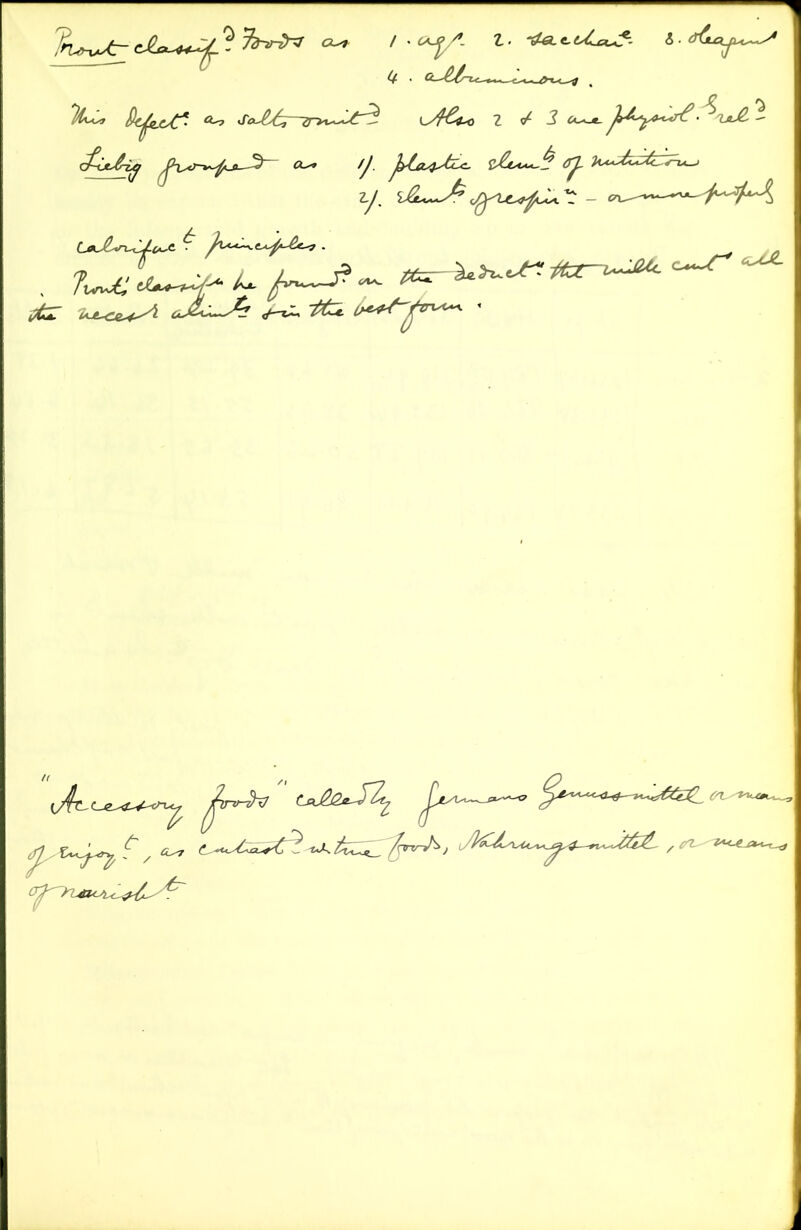 Prout classif^d Foods as 1. aq^s. 2. sacchar^e. 3. oleagin^s
4. albuminous.
This defect^e. as salts omit^d Also 2 & 3 are physiol. ^y rel^d
Liebig grouped as 1/. plastic elem^ts of nutrition
2/. elem^ts of respir^n - or more properly
calorifac^t principles.
Prout's classif^n he found^d on the deduct^n. that milk cont^s all
the necess^y alim^ts & in the best form.
"Accessory foods" called by Germans Genussmittel or means
of Enjoy^t, as contrast^d with true foods, Nahrungsmittel, or means
of nourish^t